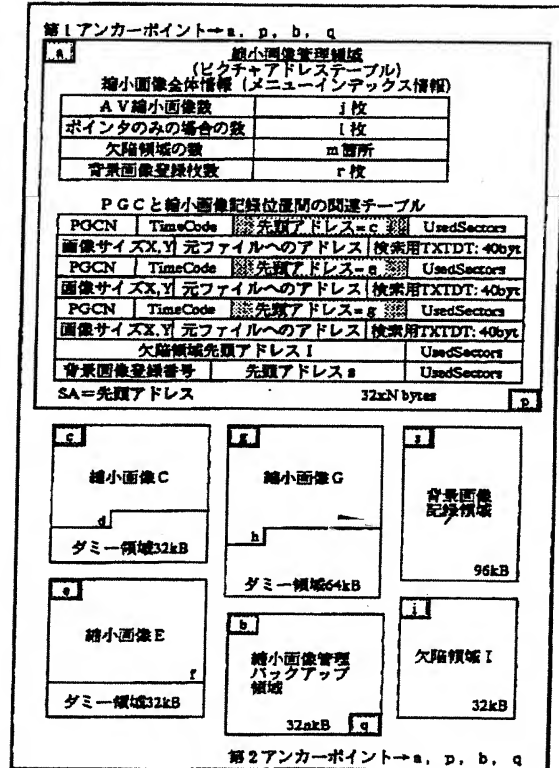 第1アンカーポイント→a, p, b, q
a
縮小画像管理領域
(ピクチャアドレステーブル)
縮小画像全体情報 (メニューインデックス情報)
AV縮小画像数 j枚
ポインタのみの場合の数 l枚
欠陥領域の数 m箇所
背景画像登録枚数 r枚
PGCと縮小画像記録位置間の関連テーブル
PGCN TimeCode 先頭アドレス=c UsedSectors
画像サイズX,Y 元ファイルへのアドレス 検索用TXTDT: 40byt
PGCN TimeCode 先頭アドレス=e UsedSectors
画像サイズX,Y 元ファイルへのアドレス 検索用TXTDT: 40byt
PGCN TimeCode 先頭アドレス=g UsedSectors
画像サイズX,Y 元ファイルへのアドレス 検索用TXTDT: 40byt
欠陥領域先頭アドレス I UsedSectors
背景画像登録番号 先頭アドレス s UsedSectors
SA=先頭アドレス 32xN bytes p
c
縮小画像C
d
ダミー領域32kB
g
縮小画像G
h
ダミー領域64kB
s
背景画像
記録領域
96kB
e
縮小画像E
f
ダミー領域32kB
b
縮小画像管理
バックアップ
領域
32nkB q
i
欠陥領域 I
32kB
第2アンカーポイント→a, p, b, q